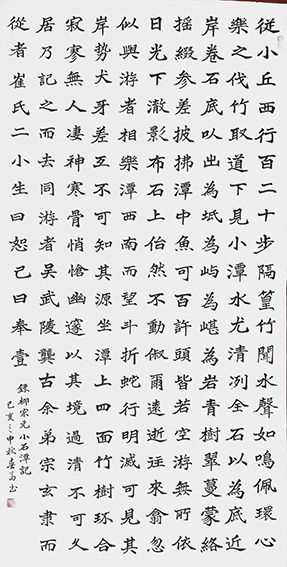 從小丘西行百二十步隔篁竹聞水聲如鳴佩環心
樂之伐竹取道下見小潭水尤清冽全石以為底近
岸卷石底以出為坻為嶼為嵁為岩青樹翠蔓蒙絡
搖綴參差披拂潭中魚可百許頭皆若空游無所依
日光下澈影布石上佁然不動俶爾遠逝往來翕忽
似與游者相樂潭西南而望斗折蛇行明滅可見其
岸勢犬牙差互不可知其源坐潭上四面竹樹環合
寂寥無人凄神寒骨悄愴幽邃以其境過清不可久
居乃記之而去同游者吳武陵龔古余弟宗玄隸而
從者崔氏二小生曰恕己曰奉壹
錄柳宗元小石潭記
己亥之中秋